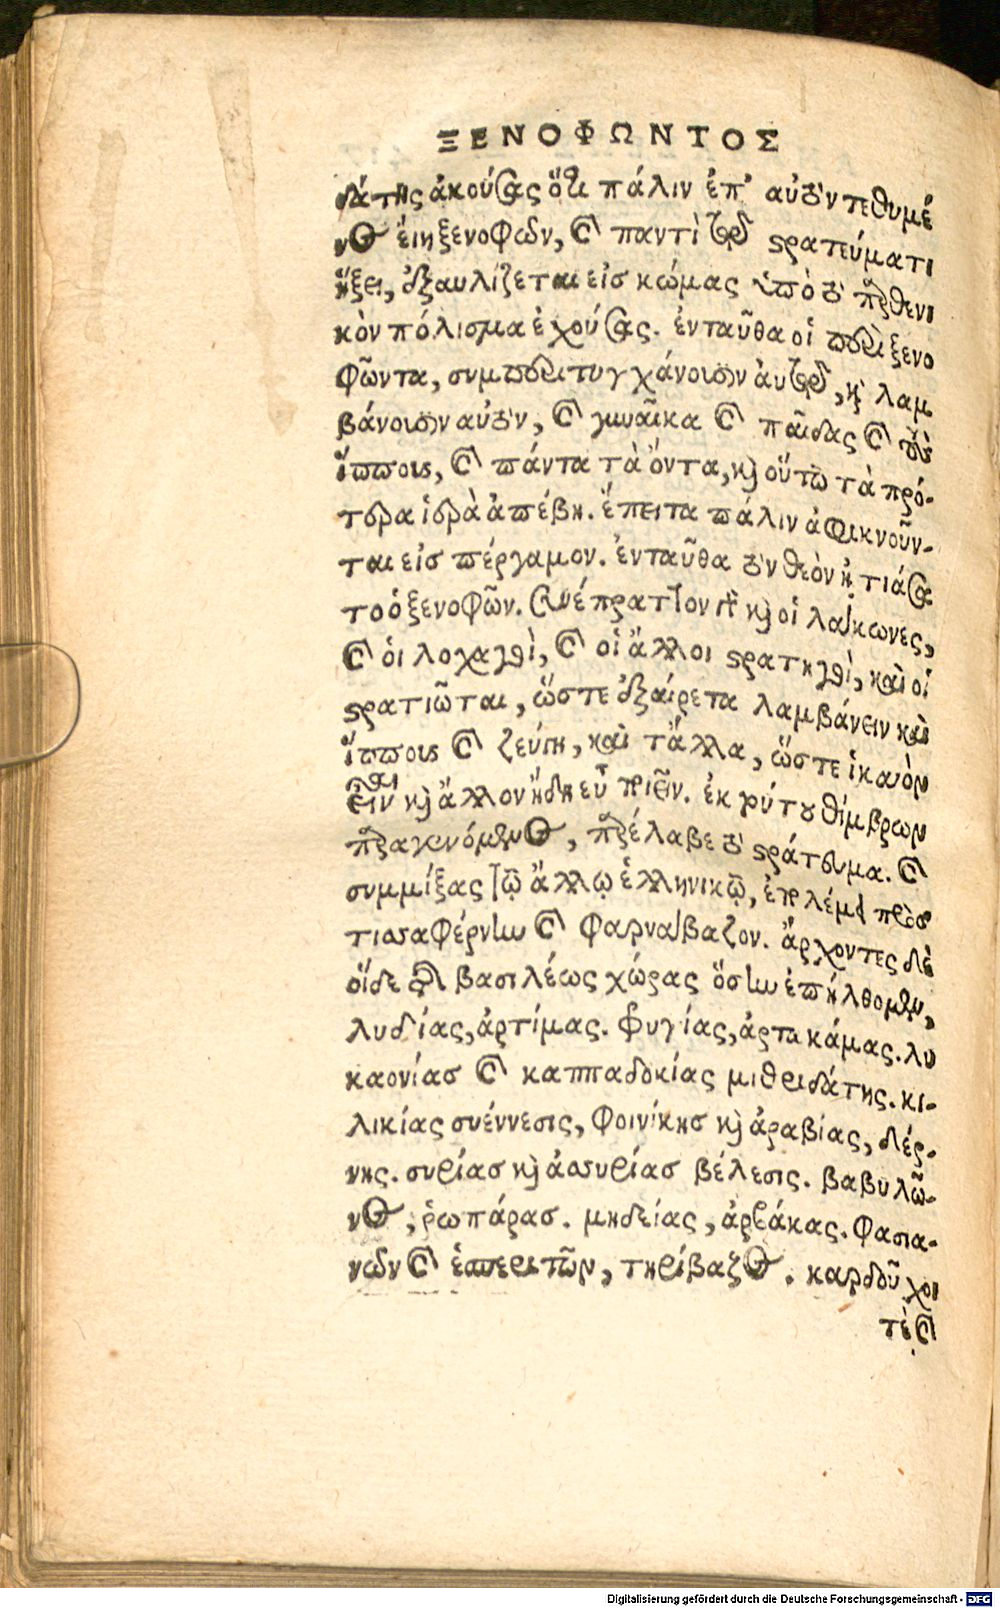 ΞΕΝΟΦΩΝΤΟΣ
δάτης ἀκούσας ὅτι πάλιν ἐπ' αὐτὸν τεθυμέ
νος εἴη ξενοφῶν, καὶ παντὶ τῷ στρατεύματι
ἥξει, ἐξαυλίζεται εἰς κώμας ὑπὸ τὸ παρθενι
κὸν πόλισμα ἐχούσας. ἐνταῦθα οἱ περὶ ξενο
φῶντα, συμπεριτυγχάνουσιν ἀυτῷ, καὶ λαμ
βάνουσιν αὐτὸν, καὶ γυναῖκα καὶ παῖδας καὶ τοὺς
ἵππους, καὶ πάντα τὰ ὄντα, καὶ οὕτω τὰ πρό-
τερα ἱερὰ ἀπέβη. ἔπειτα πάλιν ἀφικνοῦν-
ται εἰς πέργαμον. ἐνταῦθα τὸν θεὸν ᾐτιάσα
το ὁ ξενοφῶν. συνέπραττον γὰρ καὶ οἱ λάκωνες,
καὶ ὁι λοχαγοὶ, καὶ οἱ ἄλλοι στρατηγοὶ, καὶ οἱ
στρατιῶται, ὥστε ἐξαίρετα λαμβάνειν καὶ
ἵππους καὶ ζεύγη, καὶ τἄλλα, ὥστε ἱκανὸν
εἶναι καὶ ἄλλον ἤδη εὖ ποιεῖν. ἐκ τούτου θίμβρων
παραγενόμενος, παρέλαβε τὸ στράτευμα. καὶ
συμμίξας τῷ ἄλλῳ ἑλληνικῷ, ἐπολέμει πρὸς
τισσαφέρνην καὶ φαρνάβαζον. ἄρχοντες δὲ
οἵδε τῆς βασιλέως χώρας ὅσην ἐπήλθομεν,
λυδίας, ἀρτίμας. φρυγίας, ἀρτακάμας. λυ
καονίας καὶ καππαδοκίας μιθριδάτης. κι-
λικίας συέννεσις, φοινίκης καὶ ἀραβίας, δέρ-
νης. συρίας καὶ ἀσσυρίας βέλεσις. βαβυλῶ-
νος, ῥωπάρας. μηδείας, ἀρβάκας. φασια-
νῶν καὶ ἑσπεριτῶν, τηρίβαζος. καρδοῦχοι
τὲ καὶ
Digitalisierung gefördert durch die Deutsche Forschungsgemeinschaft - DFG